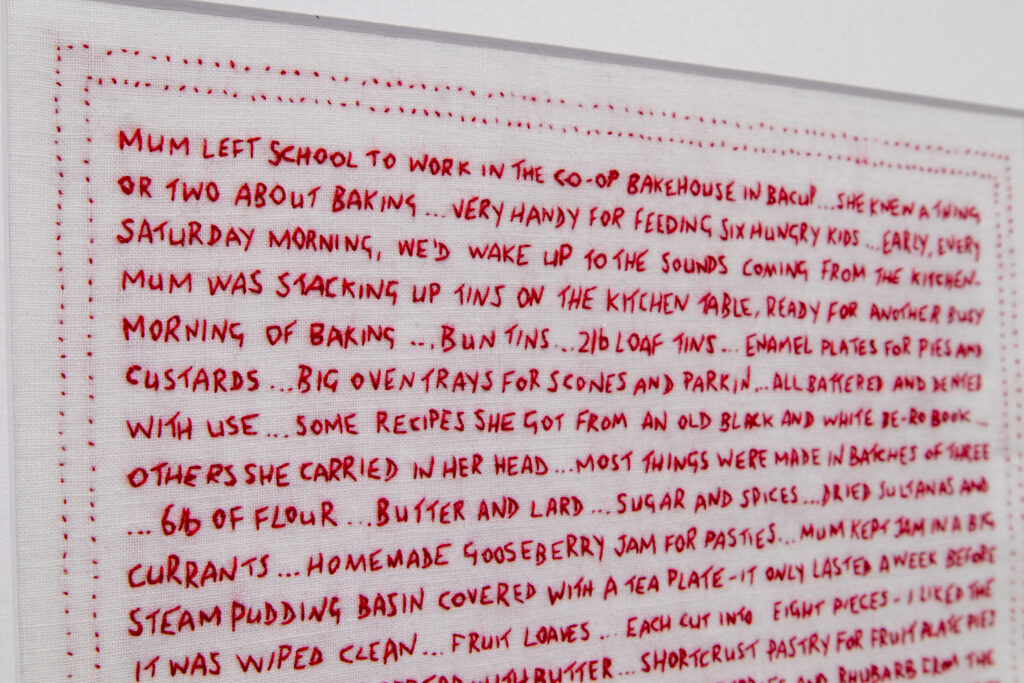 MUM LEFT SCHOOL TO WORK IN THE CO-OP BAKEHOUSE IN BACUP...SHE KNEW A THING
OR TWO ABOUT BAKING...VERY HANDY FOR FEEDING SIX HUNGRY KIDS...EARLY, EVERY
SATURDAY MORNING, WE'D WAKE UP TO THE SOUNDS COMING FROM THE KITCHEN.
MUM WAS STACKING UP TINS ON THE KITCHEN TABLE, READY FOR ANOTHER BUSY
MORNING OF BAKING...BUN TINS...2lb LOAF TINS...ENAMEL PLATES FOR PIES AND
CUSTARDS...BIG OVEN TRAYS FOR SCONES AND PARKIN...ALL BATTERED AND DENTED
WITH USE...SOME RECIPES SHE GOT FROM AN OLD BLACK AND WHITE BE-RO BOOK...
OTHERS SHE CARRIED IN HER HEAD...MOST THINGS WERE MADE IN BATCHES OF THREE
...6lb OF FLOUR...BUTTER AND LARD...SUGAR AND SPICES...DRIED SULTANAS AND
CURRANTS...HOMEMADE GOOSEBERRY JAM FOR PASTIES...MUM KEPT JAM IN A BIG
STEAM PUDDING BASIN COVERED WITH A TEA PLATE-IT ONLY LASTED A WEEK BEFORE
IT WAS WIPED CLEAN...FRUIT LOAVES...EACH CUT INTO EIGHT PIECES-I LIKED THE
WITH BUTTER...SHORTCRUST PASTRY FOR FRUIT PLATE PIES
AND RHUBARB FROM THE